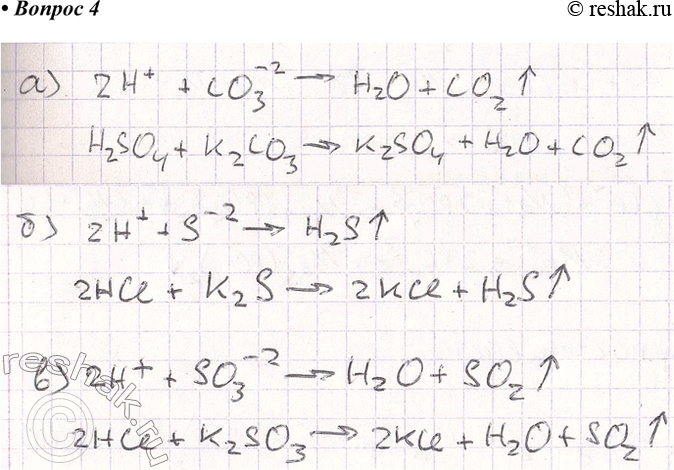 • Вопрос 4
© reshak.ru
а) 2H⁺ + CO₃⁻² → H₂O + CO₂↑
H₂SO₄ + K₂CO₃ → K₂SO₄ + H₂O + CO₂↑
б) 2H⁺ + S⁻² → H₂S↑
2HCl + K₂S → 2KCl + H₂S↑
в) 2H⁺ + SO₃⁻² → H₂O + SO₂↑
2HCl + K₂SO₃ → 2KCl + H₂O + SO₂↑
reshak.ru
©